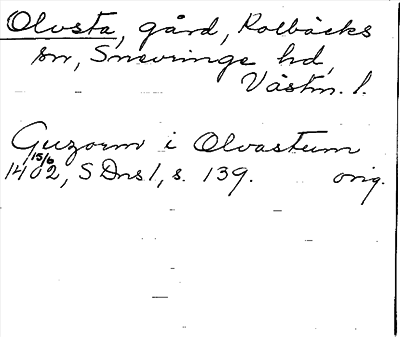 Olvsta, gård, Kolbäcks
sn, Snevringe hd,
Västm. l.
Guzorm i Olvastum
15/6
1402, SDns 1, s. 139. orig.